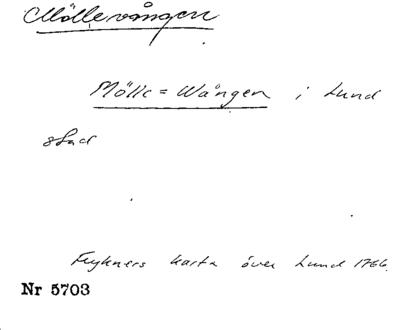 Möllevången
Mölle=Wången i Lund
stad
karta över Lund 1766.
Nr 5703